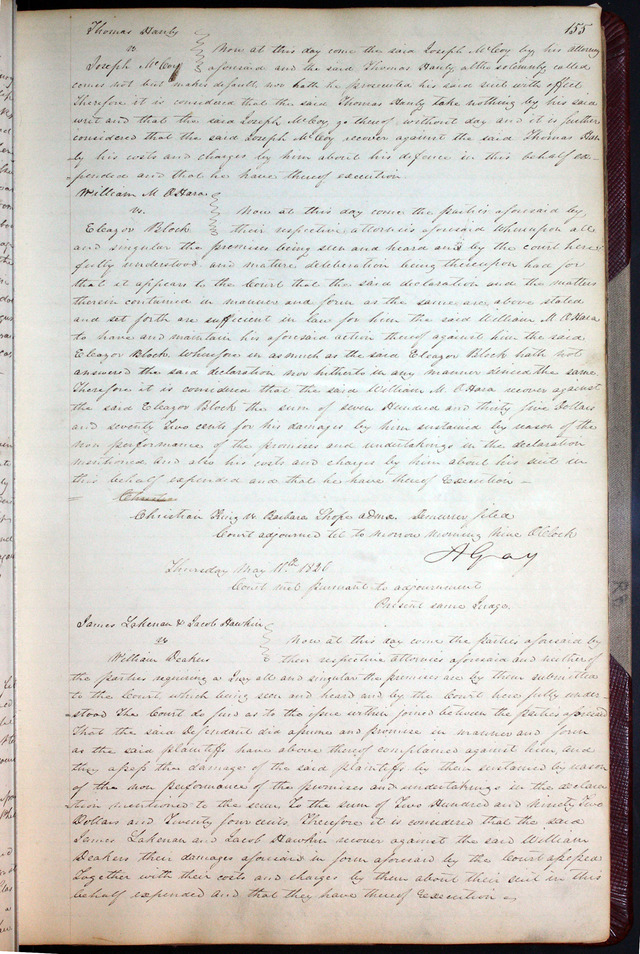 155
Thomas Hanly
vs
Joseph McCoy
Now at this day come the said Joseph McCoy by his attorney
aforesaid and the said Thomas Hanly altho solemnly called
comes not but makes default nor hath he prosecuted his said suit with effect
Therefore it is considered that the said Thomas Hanly take nothing by his said
writ and that the said Joseph McCoy go thereof without day and it is further
considered that the said Joseph McCoy recover against the said Thomas Han-
ly his costs and charges by him about his defence in this behalf ex-
pended and that he have thereof execution
William M. OHara
vs.
Eleazor Block
Now at this day come the parties aforesaid by
their respective attornies aforesaid whereupon all
and singular the premises being seen and heard and by the court here
fully understood and mature deliberation being thereupon had for
that it appears to the Court that the said declaration and the matters
therein contained in manner and form as the same are above stated
and set forth are sufficient in law for him the said William M. OHara
to have and maintain his aforesaid action thereof against him the said
Eleazor Block. Wherefore in as much as the said Eleazor Block hath not
answered the said declaration nor hitherto in any manner denied the same
Therefore it is considered that the said William M. OHara recover against
the said Eleazor Block the sum of seven Hundred and thirty five Dollars
and seventy Two cents for his damages by him sustained by reason of the
non performance of the promises and undertakings in the declaration
mentioned and also his costs and charges by him about his suit in
this behalf expended and that he have thereof Execution -
Christian
Christian King vs. Barbara admx. Demurrer filed
Court adjourned til to morrow morning Nine OClock
A Gray
Thursday May 11th 1826
Court met pursuant to adjournment
Present same Judge.
James Lakenan & Jacob Hawkin
vs
William Deakers
Now at this day come the parties aforesaid by
their respective attornies aforesaid and neither of
the parties requiring a Jury all and singular the premises are by them submitted
to the Court, which being seen and heard and by the Court here fully under-
-stood The Court do find as to the issue within joined between the parties aforesaid
That the said Defendant did assume and promise in manner and form
as the said plaintiffs have above thereof complained against him, and
they assess the damage of the said plaintiffs by them sustained by reason
of the non performance of the promises and undertakings in the declara
tion mentioned to the sum. To the sum of Two Hundred and Ninety Two
Dollars and Twenty four cents. Therefore it is considered that the said
James Lakenan and Jacob Hawkin recover against the said William
Deakers their damages aforesaid in form aforesaid by the Court assessed
Together with their costs and charges by them about their suit in this
behalf expended and that they have thereof Execution -